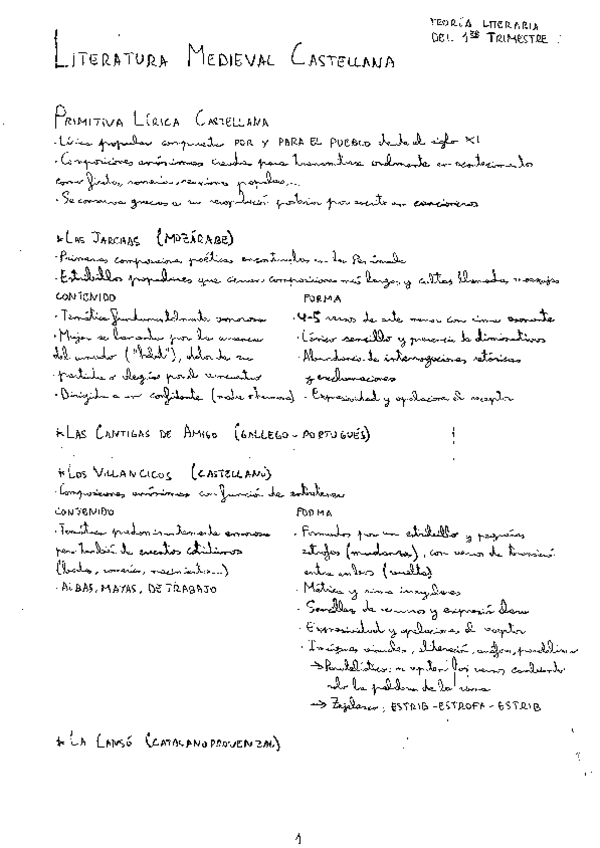 TEORÍA LITERARIA
DEL 1ER TRIMESTRE
LITERATURA MEDIEVAL CASTELLANA
PRIMITIVA LÍRICA CASTELLANA
· Lírica popular compuesta POR Y PARA EL PUEBLO desde el siglo XI
· Composiciones anónimas creadas para transmitirse oralmente en acontecimientos
como fiestas, romerías, reuniones populares...
· Se conserva gracias a su recopilación posterior por escrito en cancioneros
* LAS JARCHAS (MOZÁRABE)
· Primeras composiciones poéticas encontradas en la Península
· Estribillos populares que cierran composiciones más largas y cultas llamadas moaxajas
CONTENIDO
· Temática fundamentalmente amorosa
· Mujer se lamenta por la ausencia
del amado ("habib"), dolor de su
· partida o alegría por el reencuentro
· Dirigida a un confidente (madre o hermana)
FORMA
· 4-5 versos de arte menor con rima asonante
· Léxico sencillo y presencia de diminutivos
· Abundancia de interrogaciones retóricas
y exclamaciones
· Expresividad y apelaciones al receptor
* LAS CANTIGAS DE AMIGO (GALLEGO-PORTUGUÉS)
* LOS VILLANCICOS (CASTELLANO)
· Composiciones anónimas con función de entretener
CONTENIDO
· Temática predominantemente amorosa
pero también de eventos cotidianos
(bodas, romerías, nacimientos...)
· ALBAS, MAYAS, DE TRABAJO
FORMA
· Formados por un estribillo y pequeñas
estrofas (mudanzas), con versos de transición
entre ambos (vuelta)
· Métrica y rima irregulares
· Sencillez de recursos y expresión
· Expresividad y apelaciones al receptor
· Imágenes visuales, aliteración, anáfora, paralelismo
→ Paralelístico: se repiten los versos cambiando
solo la palabra de la rima
→ Zejelesco: ESTRIB-ESTROFA-ESTRIB
* LA CANSÓ (CATALANOPROVENZAL)
1